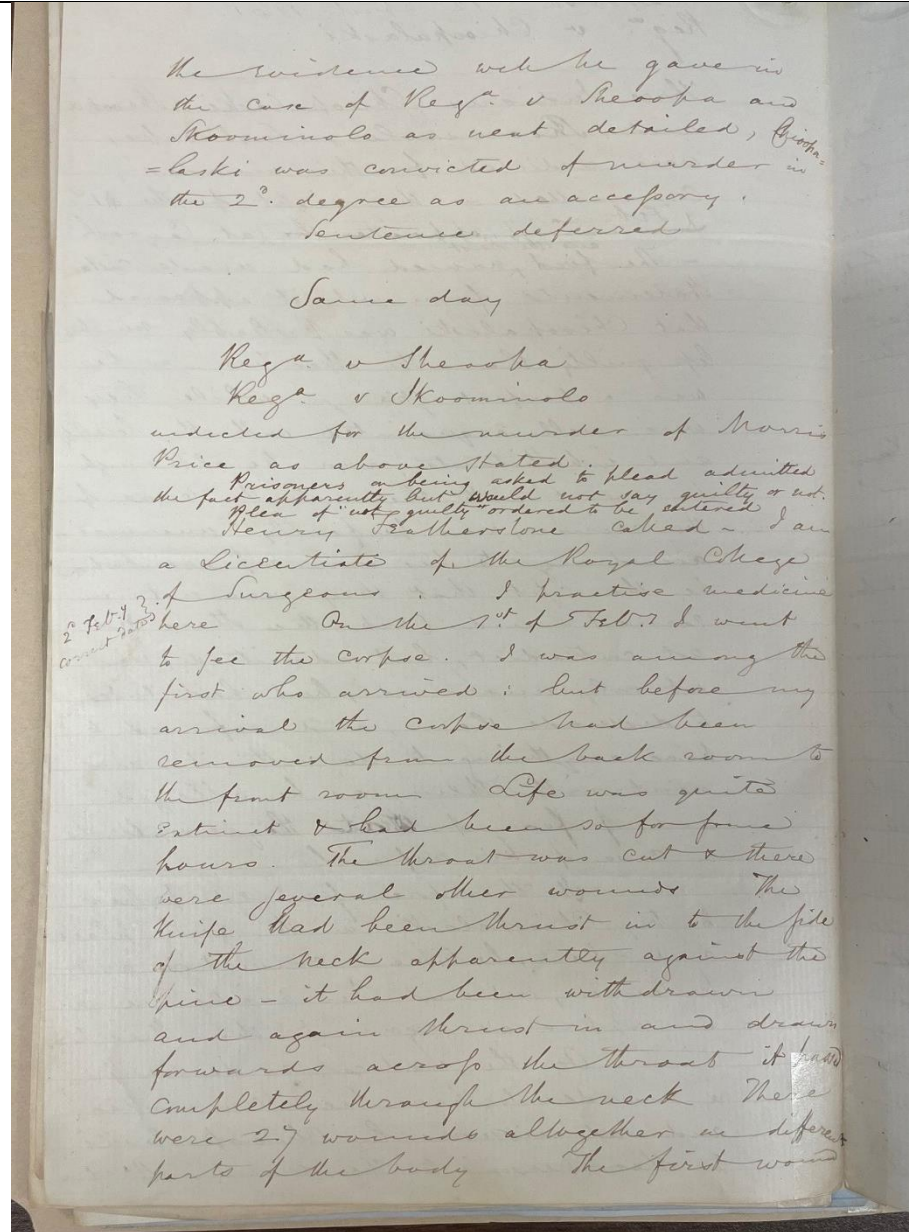 the evidence wch he gave in
the case of Rega. v Sheoopa and
Skoominolo as next detailed, Chioopa=
=laski was convicted of murder in
the 2d. degree as an accessory.
Sentence deferred
Same day
Rega. v Sheoopa
Rega. v Skoominolo
indicted for the murder of Morris
Price as above stated.
Prisoners on being asked to plead admitted
the fact apparently but would not say guilty or not.
Plea of "not guilty" ordered to be entered
Henry Featherstone called – I am
a Licentiate of the Royal College
of Surgeons. I practise medicine
2d Feb.y }.
correct dates
here On the 1st of Feb.y I went
to see the corpse. I was among the
first who arrived: but before my
arrival the corpse had been
removed from the back room to
the front room Life was quite
extinct & had been so for some
hours. The throat was cut & there
were several other wounds The
Knife had been thrust in to the side
of the neck apparently against the
spine – it had been withdrawn
and again thrust in and drawn
forwards across the throat it passed
completely through the neck There
were 27 wounds altogether in different
parts of the body The first wound